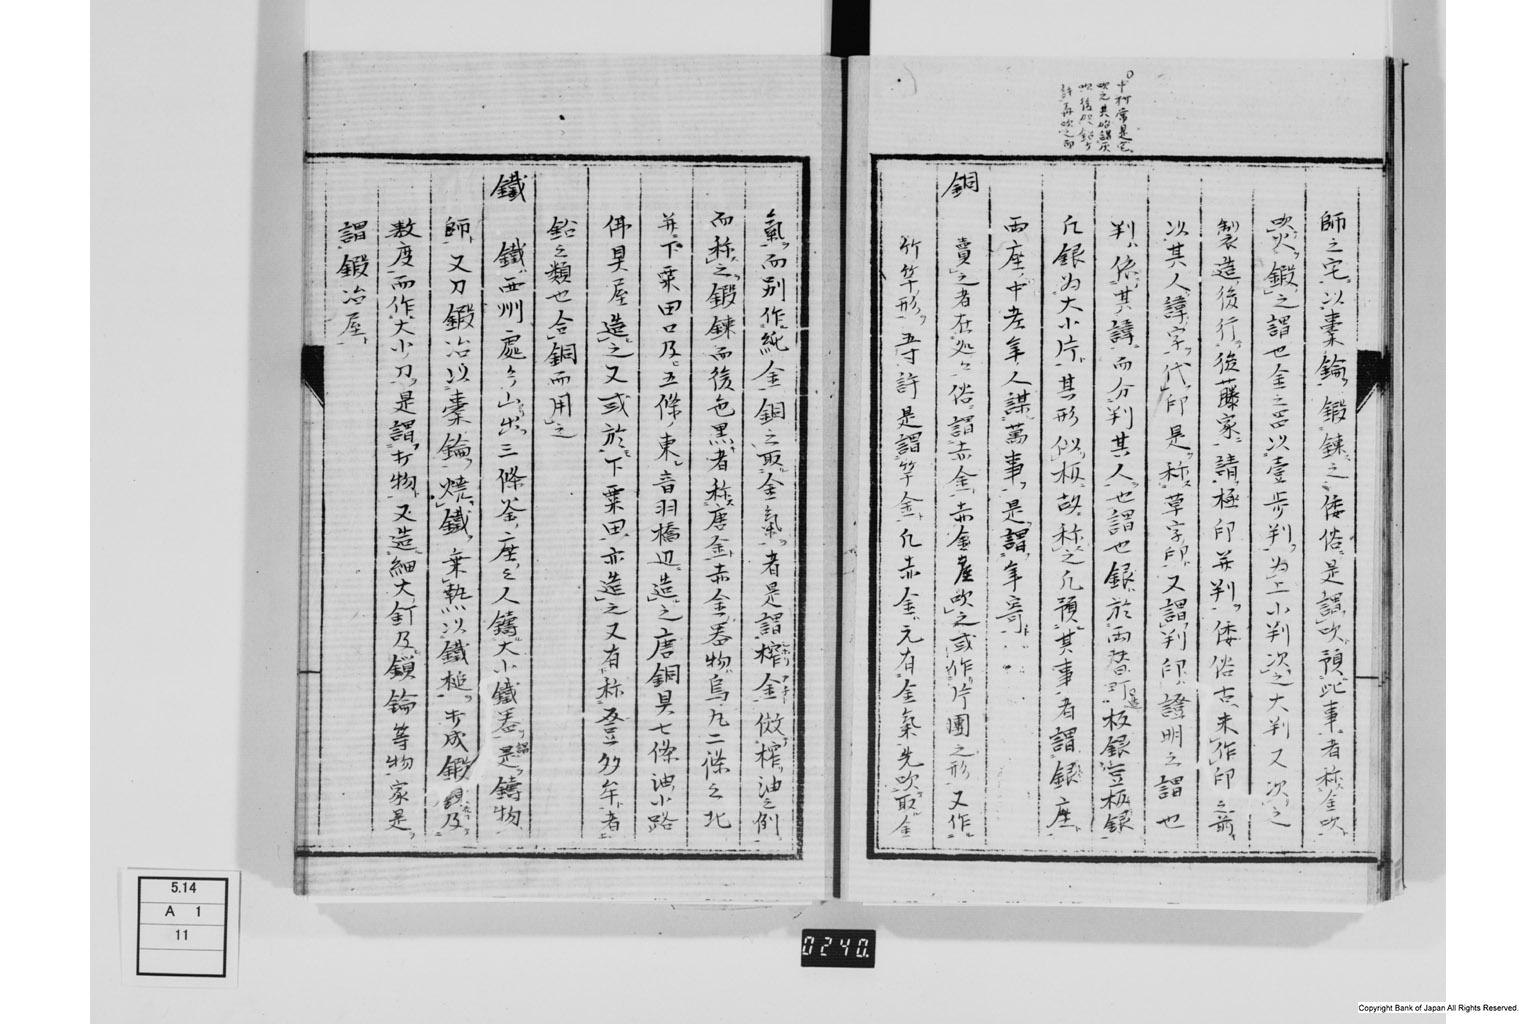 師之宅以槖錀鍛錬之倭俗是謂吹預此事者称金吹
吹火鍛之謂也金之品以壹歩判為上小判次之大判又次之
製造後行後藤家請極印并判倭俗古来作印之前
以其人諱字代印是称草字印又謂判印證明之謂也
判係其諱而分判其人也謂也銀於両替町板銀豆板銀
凡銀為大小片其形似板故称之凡預其事者謂銀座
両座中老年人謀萬事是謂年寄
銅
賣之者在処々俗謂赤金赤金座吹之或作片團之形又作
竹竿形五寸許是謂竿金凡赤金元有金氣先吹取金
氣而別作純金銅之取金氣者是謂榨金倣榨油之例
而称之鍛錬而後色黒者称唐金赤金器物烏丸二條之北
并下粟田口及五條東音羽橋辺造之唐銅具七條油小路
佛具屋造之又或於下粟田亦造之又有称
鉛之類也合銅而用之
鐵
鐵西州處々山出三條釜座之人鑄大小鐵器是謂鑄物
師又刀鍛冶以槖錀焼鐵乗熱以鐵槌打成鍛
数度而作大小刀是謂打物又造細大釘及鎖錀等物家是
謂鍛冶屋
5.14
A 1
11
0240.
Copyright Bank of Japan All Rights Reserved.